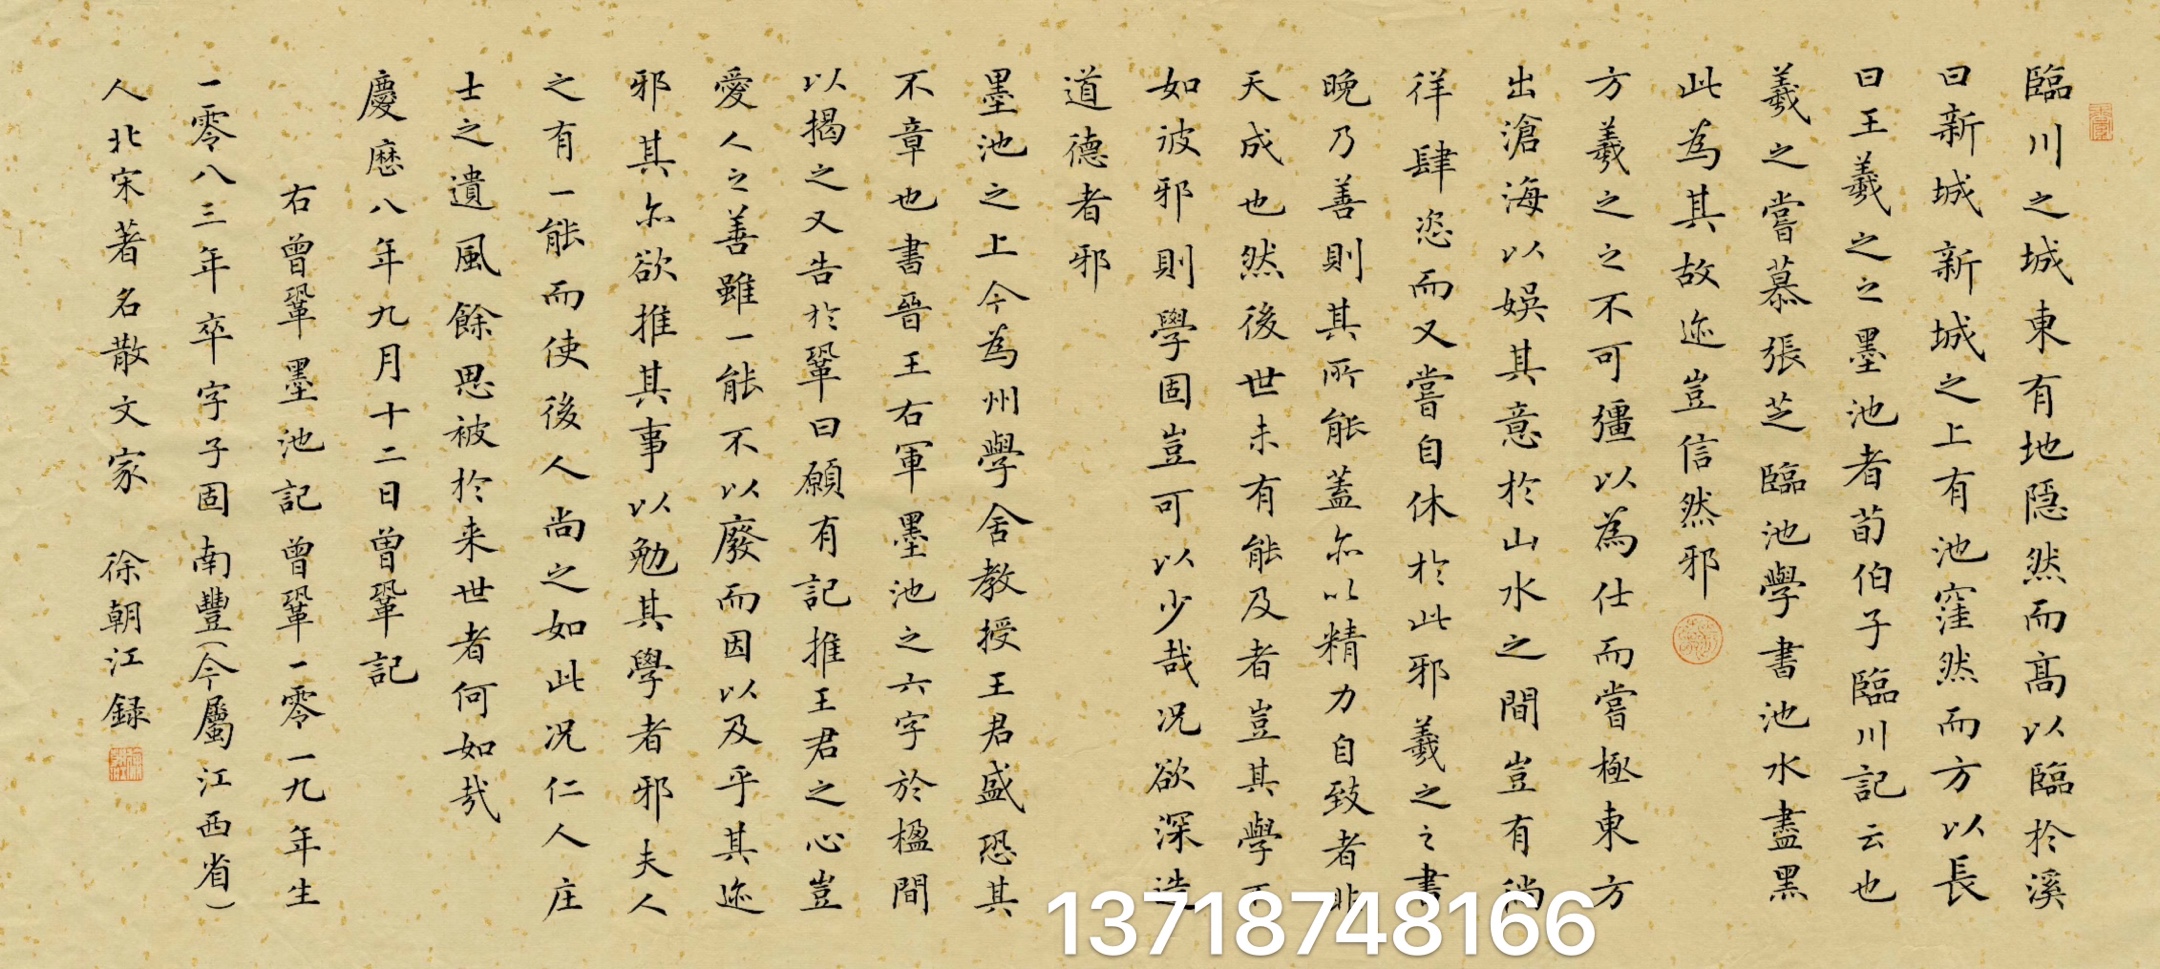 臨川之城東有地隱然而高以臨於溪
曰新城新城之上有池窪然而方以長
曰王羲之之墨池者荀伯子臨川記云也
羲之嘗慕張芝臨池學書池水盡黑
此為其故迹豈信然邪
方羲之之不可彊以為仕而嘗極東方
出滄海以娛其意於山水之間豈有徜
徉肆恣而又嘗自休於此邪羲之之書
晚乃善則其所能蓋亦以精力自致者非
天成也然後世未有能及者豈其學不
如彼邪則學固豈可以少哉况欲深造
道德者邪
墨池之上今為州學舍教授王君盛恐其
不章也書晉王右軍墨池之六字於楹間
以揭之又告於鞏曰願有記推王君之心豈
愛人之善雖一能不以廢而因以及乎其迹
邪其亦欲推其事以勉其學者邪夫人
之有一能而使後人尚之如此况仁人庄
士之遺風餘思被於来世者何如哉
慶曆八年九月十二日曾鞏記
右曾鞏墨池記曾鞏一零一九年生
一零八三年卒字子固南豐(今屬江西省)
人北宋著名散文家 徐朝江録
13718748166